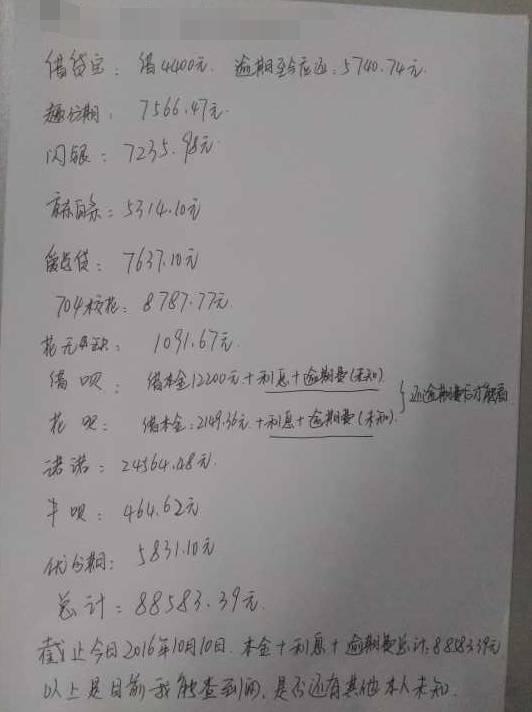 借贷宝：借4400元. 逾期至今应还：5740.74元.
趣分期： 7566.47元.
闪银： 7235.98元
京东白条：5314.10元
爱又贷： 7637.10元
704校花：8787.77元.
花无缺： 1091.67元.
借呗： 借本金12200元+利息+逾期费(未知)
花呗： 借本金：2149.36元+利息+逾期费(未知).
还逾期费后才能看
诺诺：24564.48元.
牛呗：464.62元
优分期： 5831.10元
总计：88583.39元.
截止今日2016年10月10日. 本金+利息+逾期费总计：88583.39元
以上是目前我能查到的，是否还有其他本人未知.